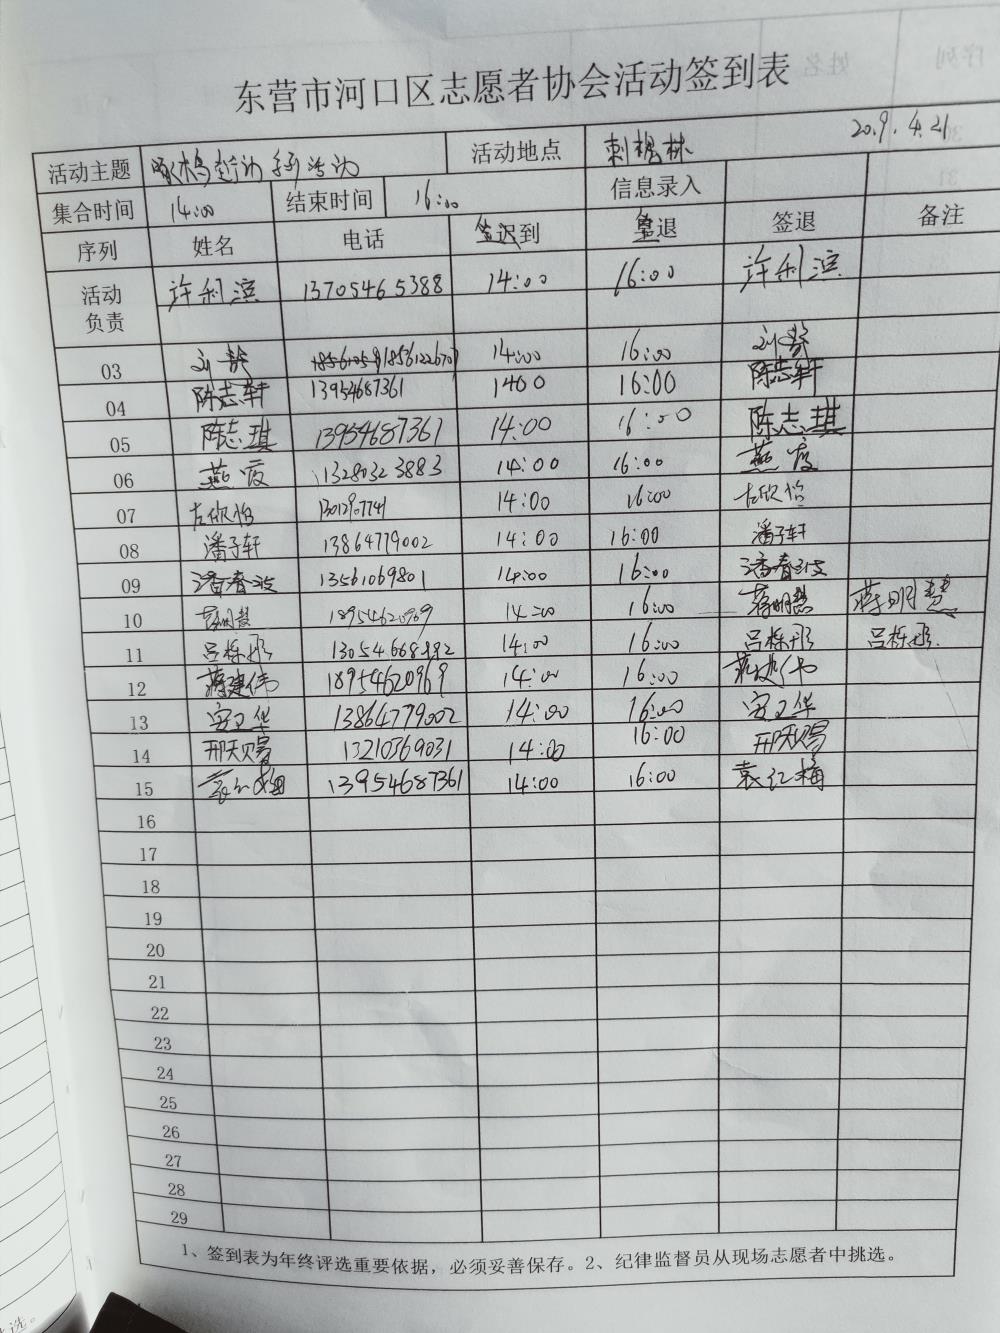 东营市河口区志愿者协会活动签到表
2019.4.21
活动主题 活动地点 刺槐林
集合时间 14:00 结束时间 16:00 信息录入
序列 姓名 电话 签到 签退 签退 备注
活动负责 许利滨 13705465388 14:00 16:00 许利滨
03 14:00 16:00
04 陈志轩 13954687361 1400 16:00 陈志轩
05 陈志琪 13954687361 14:00 16:00 陈志琪
06 燕 13280323883 14:00 16:00 燕
07 左欣怡 14:00 16:00 左欣怡
08 潘子轩 13864779002 14:00 16:00 潘子轩
09 潘春波 13561069801 14:00 16:00 潘春波
10 蒋明慧 18954620969 14:00 16:00 蒋明慧 蒋明慧
11 吕栎彤 14:00 16:00 吕栎彤 吕栎彤
12 蒋建伟 18954620969 14:00 16:00 蒋建伟
13 安卫华 13864779002 14:00 16:00 安卫华
14 邢天赐 13210369031 14:00 16:00 邢天赐
15 袁红梅 13954687361 14:00 16:00 袁红梅
16
17
18
19
20
21
22
23
24
25
26
27
28
29
1、签到表为年终评选重要依据，必须妥善保存。2、纪律监督员从现场志愿者中挑选。